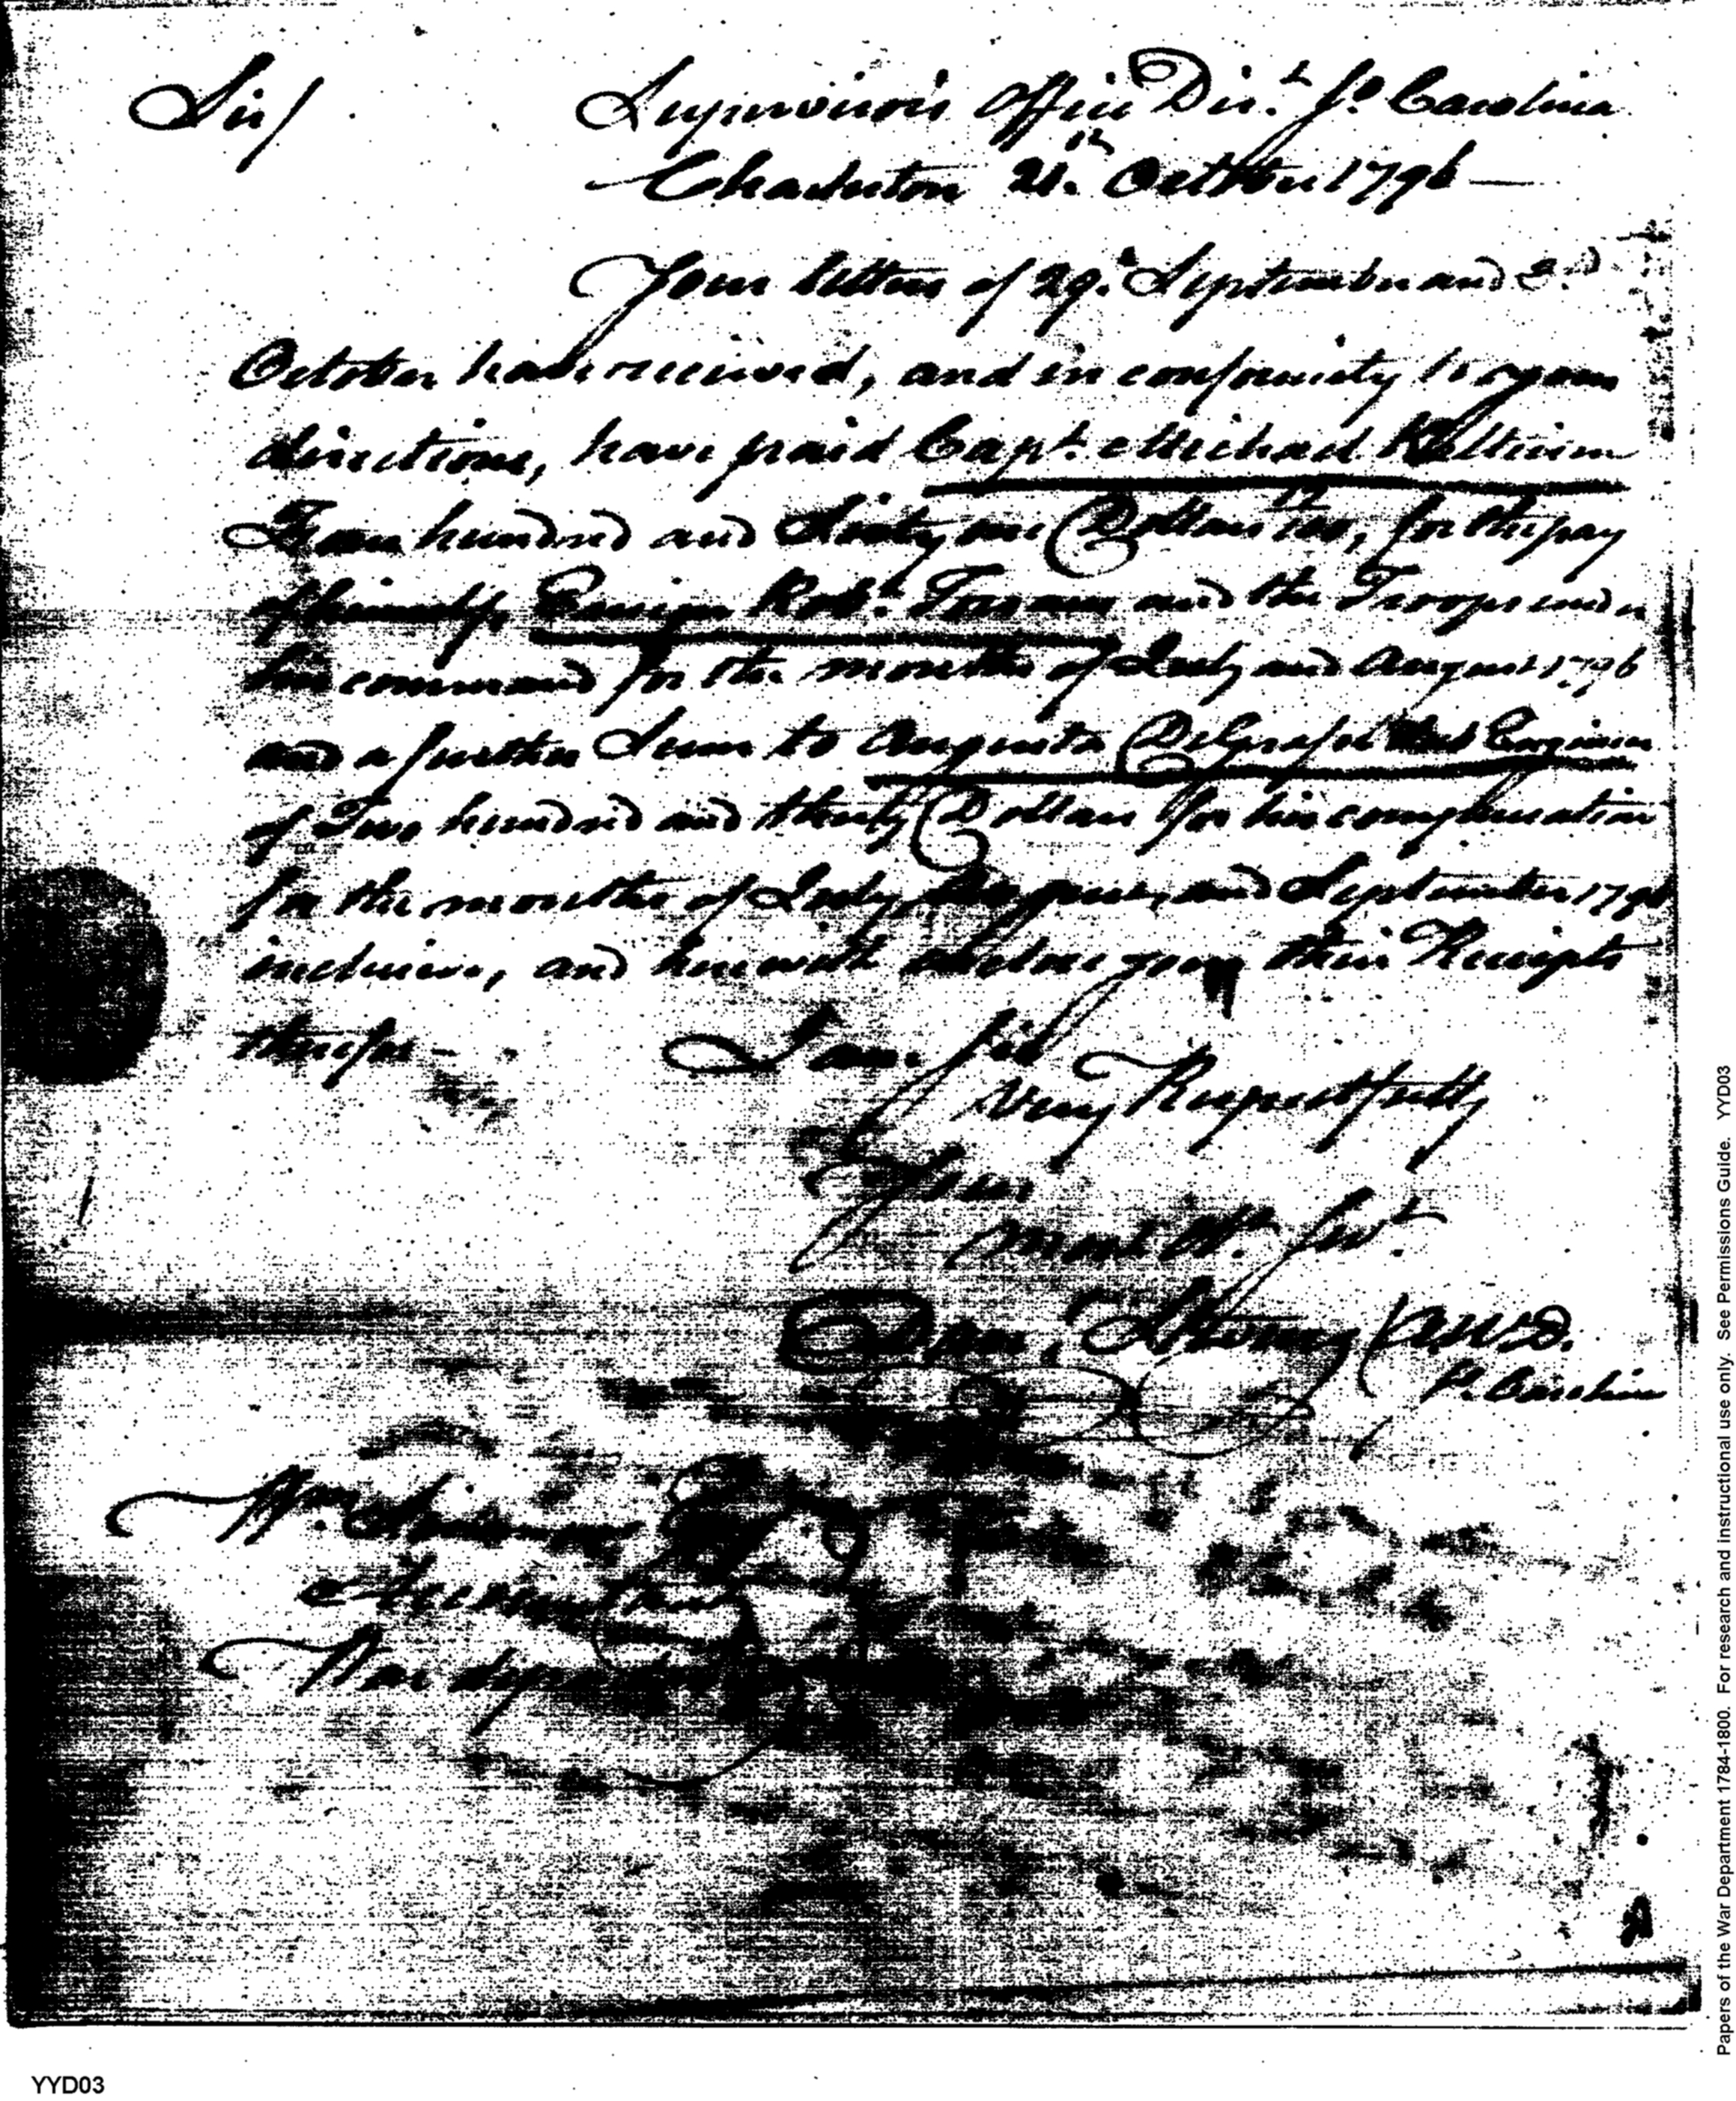 Sir/
Supervisor's Office Dist. So. Carolina
Charleston 21st October 1796
Your letters of 29th September and 3rd
October have received, and in conformity to your
directions, have paid Capt. Michael Kalteisen
Four hundred and Sixty one Dollars /100, for the pay
of himself, Ensign Robt. and the Troops under
his command for the months of July and August 1796
and a further Sum to Augusta DeGrasse Engineer
of Two hundred and thirty Dollars for his compensation
for the months of July, August, and September 1796
inclusive, and herewith enclose you their Receipts
therefor
I am Sir
Very Respectfully
Your
most Ob. Sevt.
Dan. Stevens
So. Carolina
Wm. Simmons Esq
Accountant
War department
YYD03
Papers of the War Department 1784-1800. For research and instructional use only. See Permissions Guide. YYD03